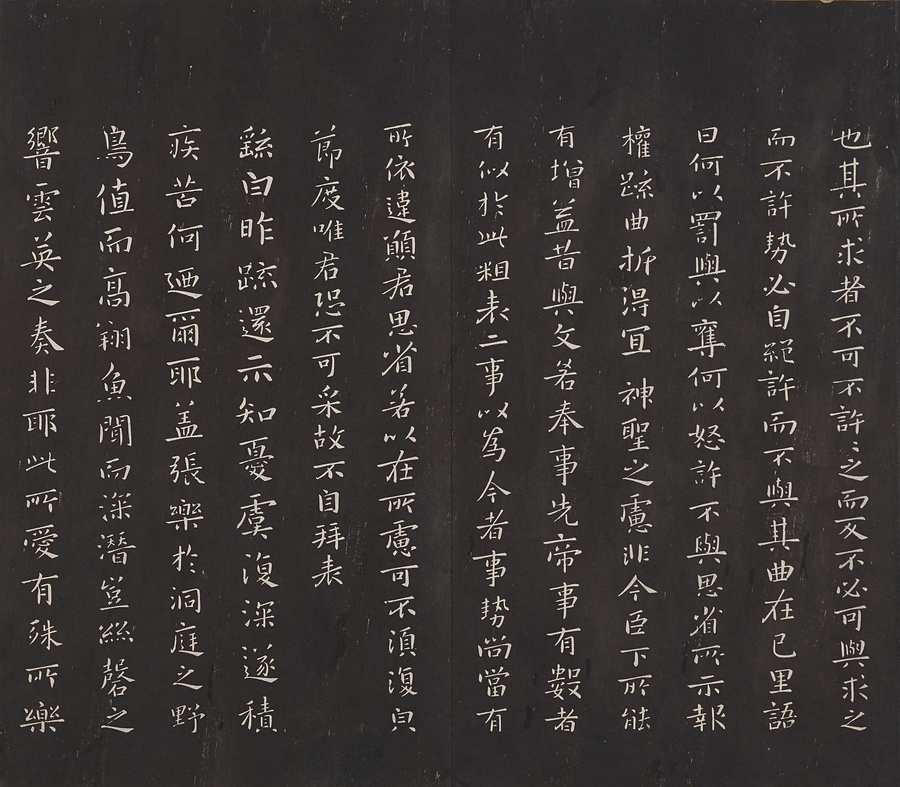 也其所求者不可不許〻之而反不必可與求之
而不許勢必自絕許而不與其曲在己里語
曰何以罰與以奪何以怒許不與思省所示報
權疏曲折得宜 神聖之慮非今臣下所能
有增益昔與文若奉事先帝事有數者
有似於此粗表二事以為今者事勢尚當有
所依違願君思省若以在所慮可不須復皃
節度唯君恐不可采故不自拜表
繇白昨疏還示知憂虞復深遂積
疾苦何迺爾耶盖張樂於洞庭之野
鳥值而高翔魚聞而深潛豈絲磬之
響雲英之奏非耶此所愛有殊所樂